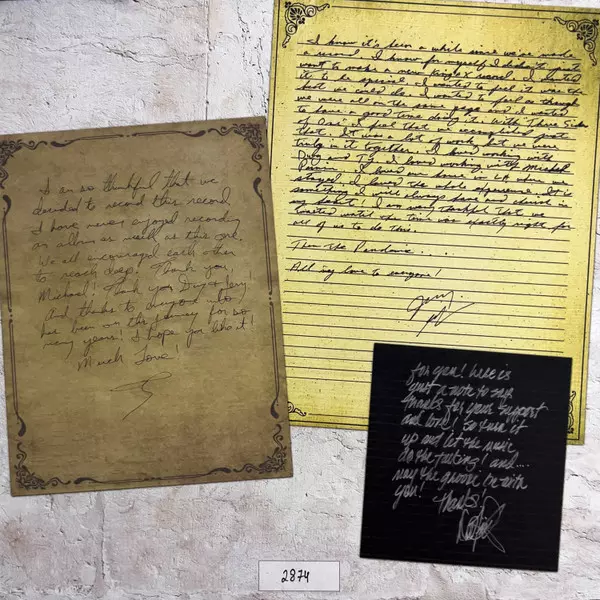 I am so thankful that we
decided to record this record.
I have never enjoyed recording
an album as much as this one.
We all encouraged each other
to reach deep! Thank you,
Michael! Thank you Dug & Jerry!
And thanks to everyone who
has been on this journey for so
many years! I hope you like it!
Much Love!
I know it's been a while since we've made
a record. I know for myself, I didn't just
want to make a new King's X record. I wanted
it to be special. I wanted to feel it was the
best we could do. I wanted to feel as though
we were all on the same page and I wanted
to have a good time doing it. With Three Sides
of One I feel that we accomplished just
that. It was a lot of work but we were
truly in it together. I loved working with
Dug and Ty. I loved working with Michael
Parnin. I loved our house in LA where we
stayed. I loved the whole experience. It is
something I will always have and cherish in
my heart! I am very thankful that we
waited until the time was exactly right for
all of us to do this.
Then the Pandemic . . . .
All my love to everyone!
Jerry
for you! here is
just a note to say
thanks for your support
and love! So turn it
up and let the music
do the talking! and....
may the groove be with
you!
Thanks!
2874